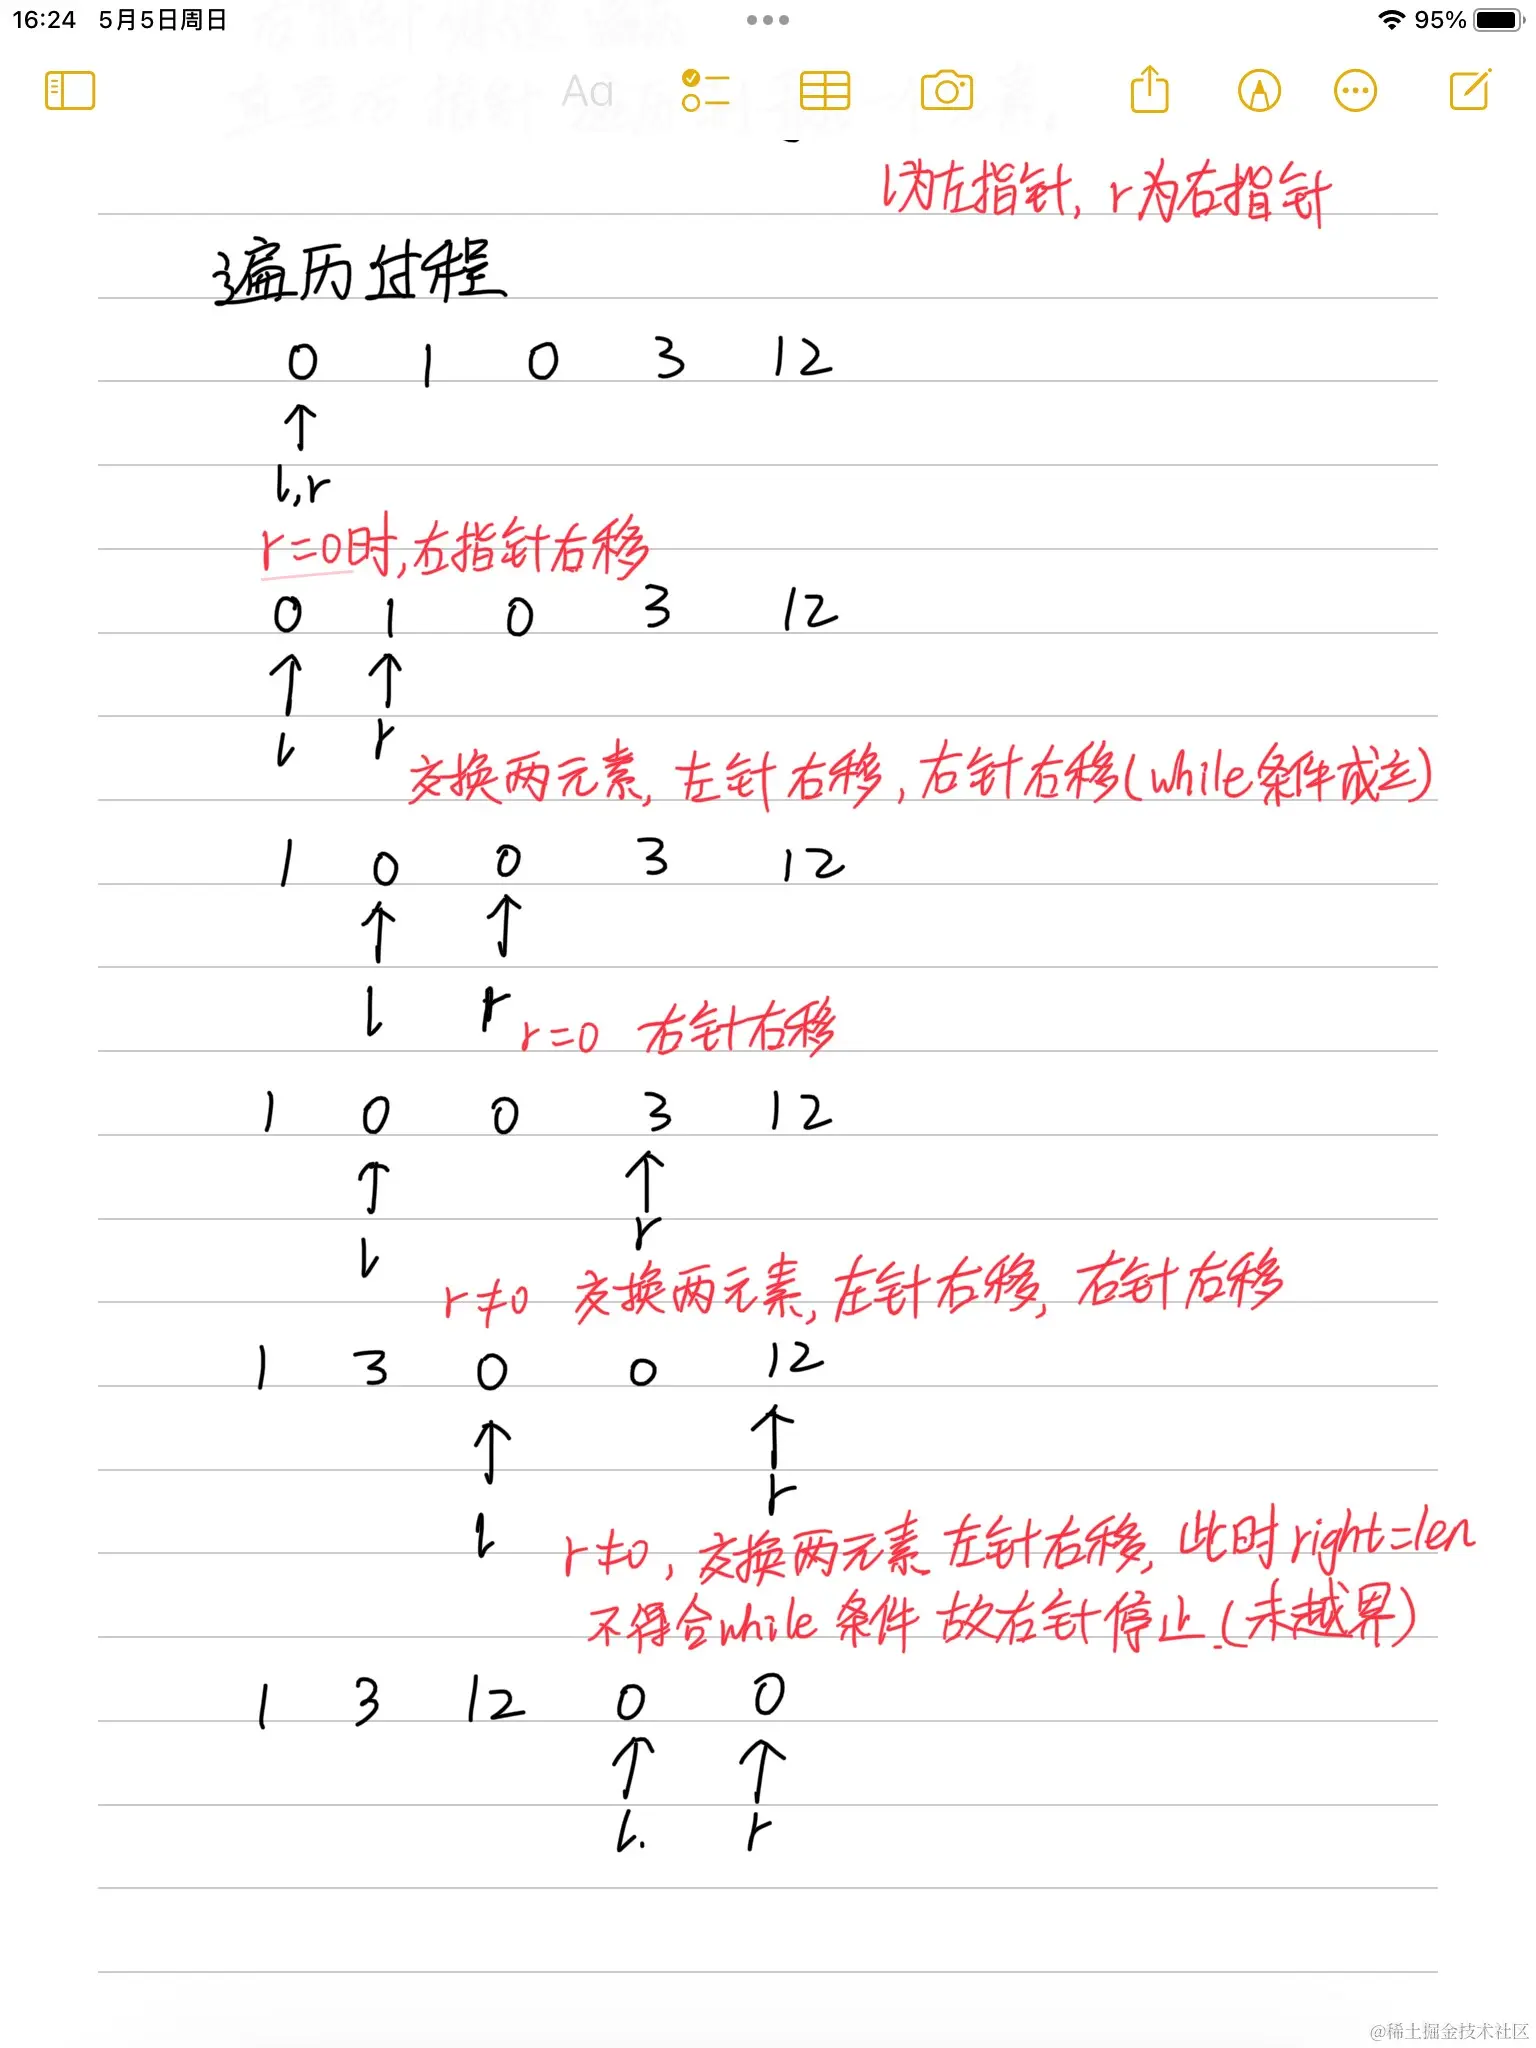 16:24 5月5日周日 95%
Aa
l为左指针, r为右指针
遍历过程
0 1 0 3 12
l,r
r=0时,右指针右移
0 1 0 3 12
l r
交换两元素, 左针右移, 右针右移(while条件成立)
1 0 0 3 12
l r
r=0 右针右移
1 0 0 3 12
l r
r≠0 交换两元素, 左针右移, 右针右移
1 3 0 0 12
l r
r≠0, 交换两元素 左针右移, 此时right=len
不符合while条件 故右针停止.(未越界)
1 3 12 0 0
l. r
@稀土掘金技术社区